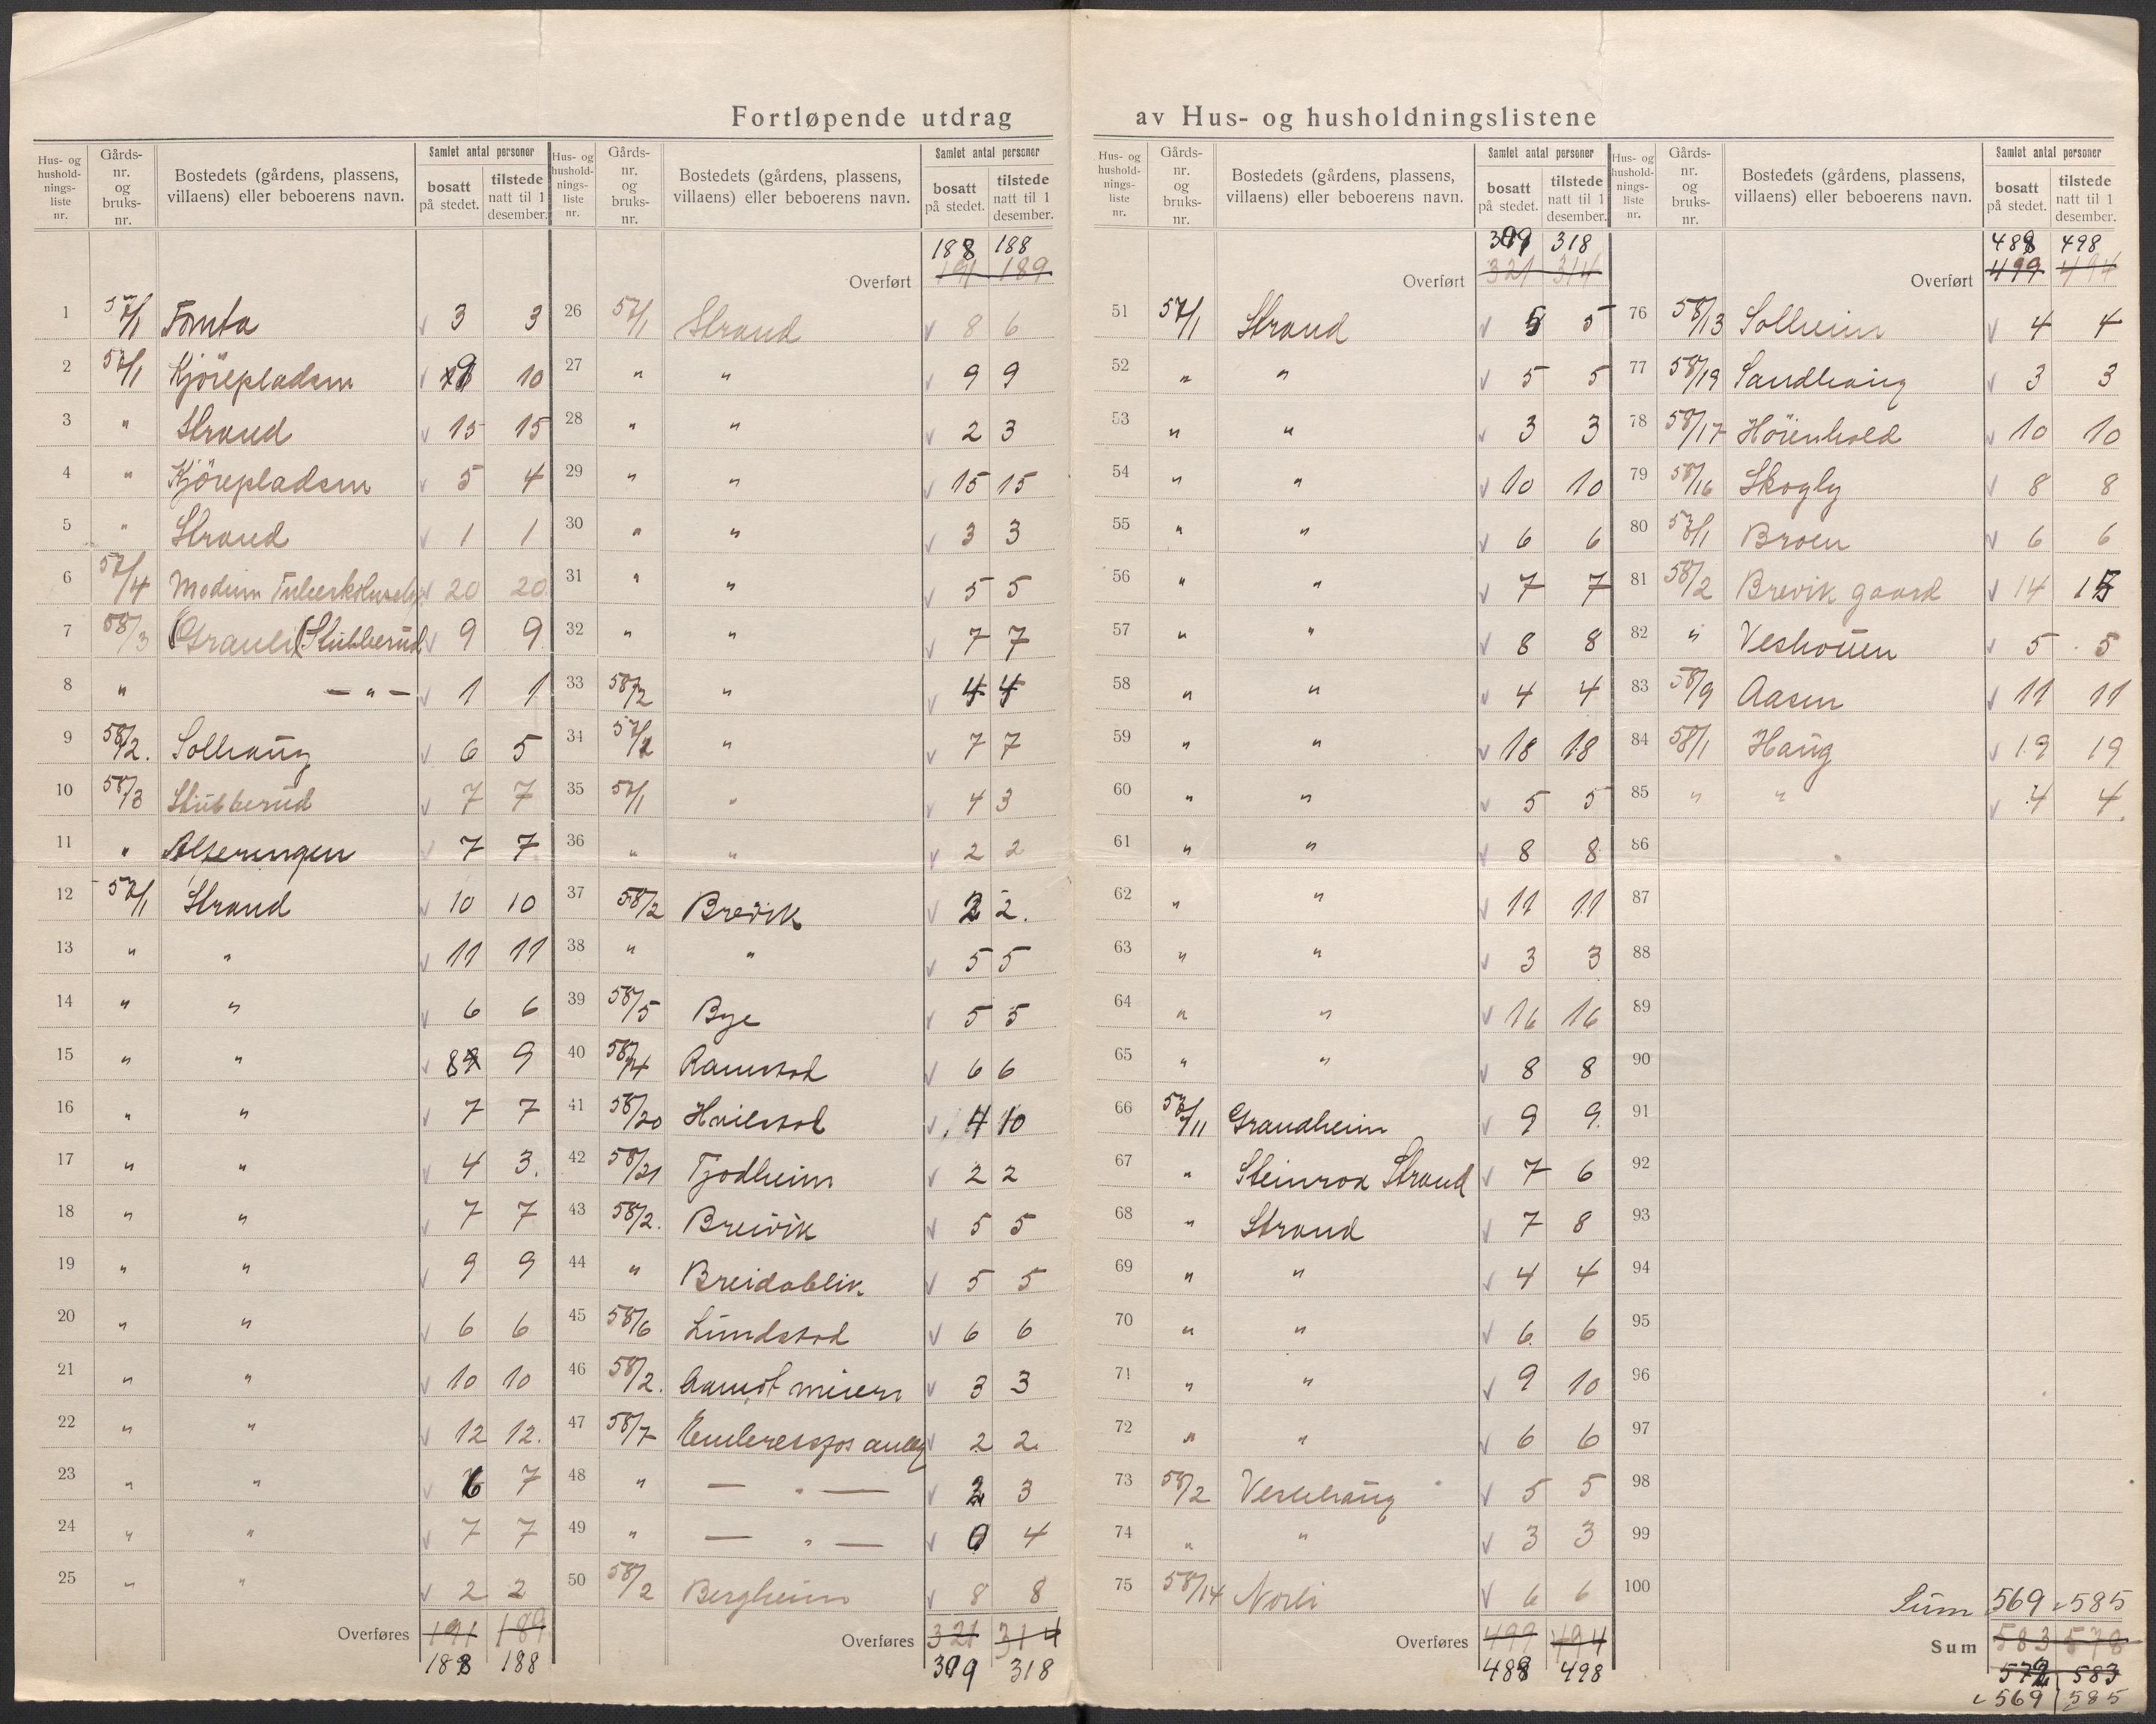 Fortløpende utdrag av Hus- og husholdningslistene
Hus- og husholdnings- liste nr. | Gårds- nr. og bruks- nr. | Bostedets (gårdens, plassens, villaens) eller beboerens navn. | Samlet antal personer: bosatt på stedet. | tilstede natt til 1 desember.
1 57/1 Tomta 3 3
2 57/1 Kjørepladsen 9 10
3 " Strand 15 15
4 " Kjørepladsen 5 4
5 " Strand 1 1
6 57/4 Modum 20 20
7 58/3 (Stubberud 9 9
8 " — " — 1 1
9 58/2. Solhaug 6 5
10 58/3 Stubberud 7 7
11 " 7 7
12 57/1 Strand 10 10
13 " " 11 11
14 " " 6 6
15 " " 8 9
16 " " 7 7
17 " " 4 3.
18 " " 7 7
19 " " 9 9
20 " " 6 6
21 " " 10 10
22 " " 12 12.
23 " " 6 7
24 " " 7 7
25 " " 2 2
Overføres 191 189
188 188
Hus- og husholdnings- liste nr. | Gårds- nr. og bruks- nr. | Bostedets (gårdens, plassens, villaens) eller beboerens navn. | Samlet antal personer: bosatt på stedet. | tilstede natt til 1 desember.
188 188
Overført 191 189
26 57/1 Strand 8 6
27 " " 9 9
28 " " 2 3
29 " " 15 15
30 " " 3 3
31 " " 5 5
32 " " 7 7
33 58/2 " 4 4
34 " 7 7
35 57/1 " 4 3
36 " " 2 2
37 58/2 Brevik 2 2.
38 " " 5 5
39 58/5 Bye 5 5
40 58/4 Ramstad 6 6
41 58/20 4 10
42 58/21 Tjodheim 2 2
43 58/2. Breivik 5 5
44 " Breidablik 5 5
45 58/6 Lundstad 6 6
46 58/2. 3 3
47 58/7 2 2
48 " — " — 2 3
49 " — " — 0 4
50 58/2 Bergheim 8 8
Overføres 321 314
309 318
Hus- og husholdnings- liste nr. | Gårds- nr. og bruks- nr. | Bostedets (gårdens, plassens, villaens) eller beboerens navn. | Samlet antal personer: bosatt på stedet. | tilstede natt til 1 desember.
309 318
Overført 321 314
51 57/1 Strand 5 5
52 " " 5 5
53 " " 3 3
54 " " 10 10
55 " " 6 6
56 " " 7 7
57 " " 8 8
58 " " 4 4
59 " " 18 18
60 " " 5 5
61 " " 8 8
62 " " 11 11
63 " " 3 3
64 " " 16 16
65 " " 8 8
66 57/11 Grandheim 9 9.
67 " Steinroa Strand 7 6
68 " Strand 7 8
69 " " 4 4
70 " " 6. 6
71 " " 9 10
72 " " 6 6
73 58/2 Veslehaug 5 5
74 " " 3 3
75 58/14 Norli 6 6
Overføres 499 494
488 498
Hus- og husholdnings- liste nr. | Gårds- nr. og bruks- nr. | Bostedets (gårdens, plassens, villaens) eller beboerens navn. | Samlet antal personer: bosatt på stedet. | tilstede natt til 1 desember.
488 498
Overført 499 494
76 58/13 Solheim 4 4
77 58/19 Sandhaug 3 3
78 58/17 10 10
79 58/16 Skogly 8 8
80 Broen 6 6
81 58/2 Brevik gaard 14
82 " 5 5
83 58/9 Aasen 11 11
84 58/1 Haug 19 19
85 " " 4 4.
86
87
88
89
90
91
92
93
94
95
96
97
98
99
100
Sum 569 585
Sum 583 578
572 583
569 585